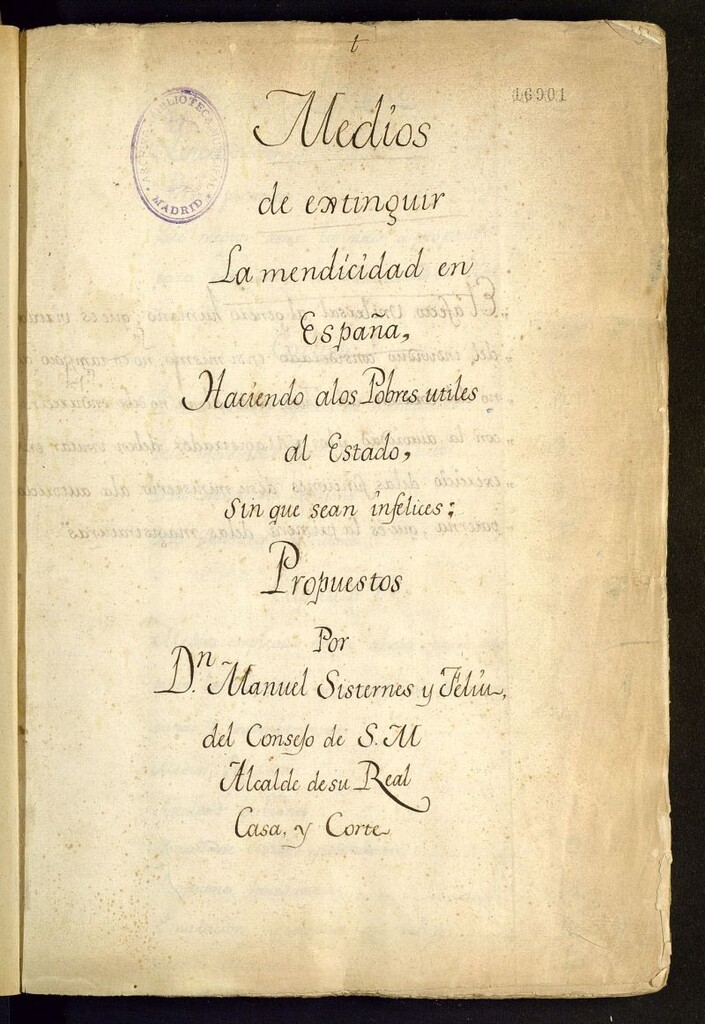 t
16901
BIBLIOTECA
MADRID
Medios
de extinguir
La mendicidad en
España,
Haciendo alos Pobres utiles
al Estado,
Sin que sean infelices;
Propuestos
Por
Dn. Manuel Sisternes y Feliu,
del Consejo de S. M
Alcalde de su Real
Casa, y Corte